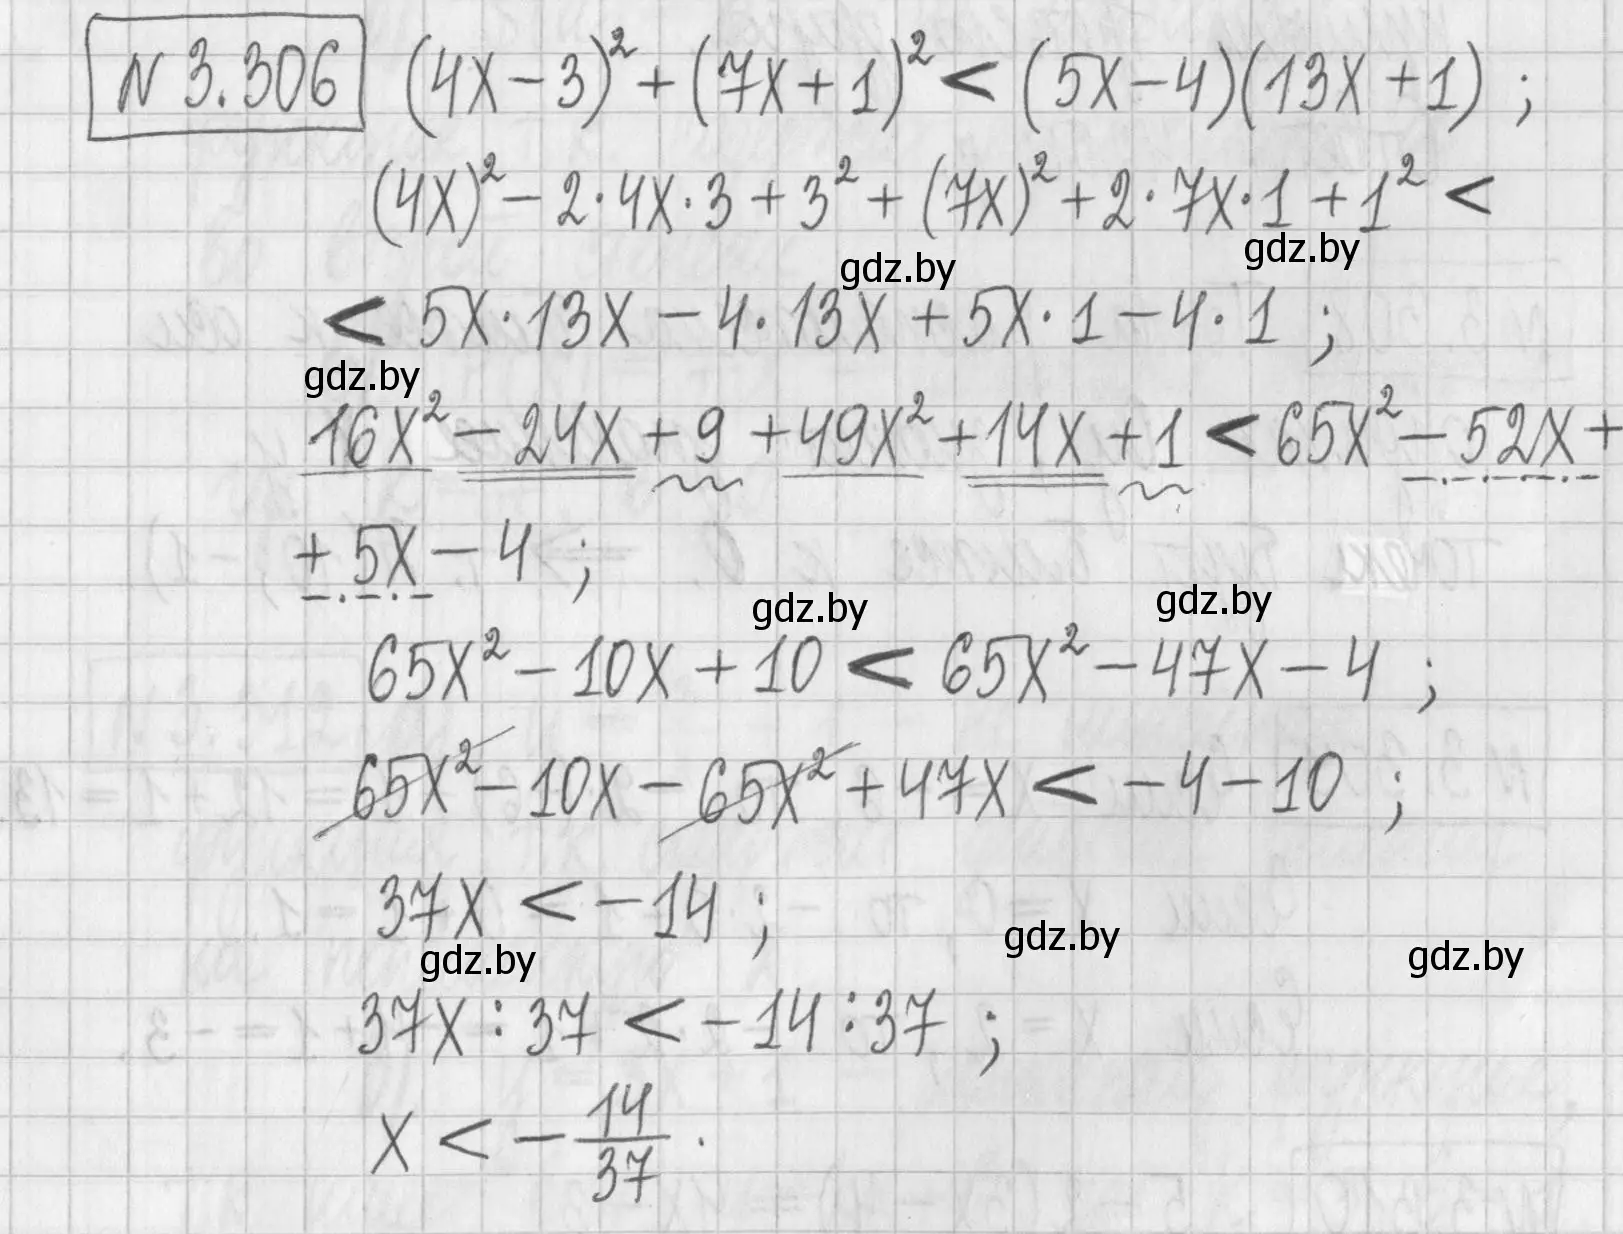 N 3.306 (4x-3)² + (7x+1)² < (5x-4)(13x+1) ;
(4x)² - 2·4x·3 + 3² + (7x)² + 2·7x·1 + 1² <
gdz.by gdz.by
< 5x·13x - 4·13x + 5x·1 - 4·1 ;
gdz.by
16x² - 24x + 9 + 49x² + 14x + 1 < 65x² - 52x +
+ 5x - 4 ;
gdz.by gdz.by
65x² - 10x + 10 < 65x² - 47x - 4 ;
65x² - 10x - 65x² + 47x < -4 - 10 ;
37x < -14 ;
gdz.by gdz.by gdz.by
37x : 37 < -14 : 37 ;
x < -14/37 .